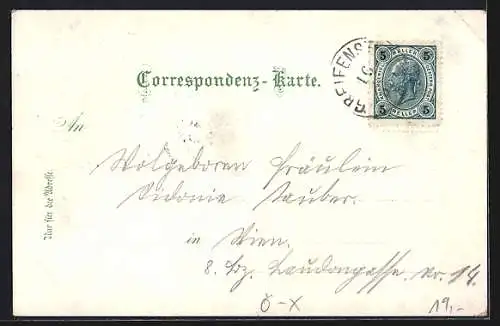 Correspondenz-Karte.
GREIFENS
5 HELLER 5
5 HELLER 5
An
Wolgeboren Fräulein
Sidonie Tauber.
in Wien.
8. Bz. Laudongasse Nr. 14.
Nur für die Adresse.
Ö-X
19,-